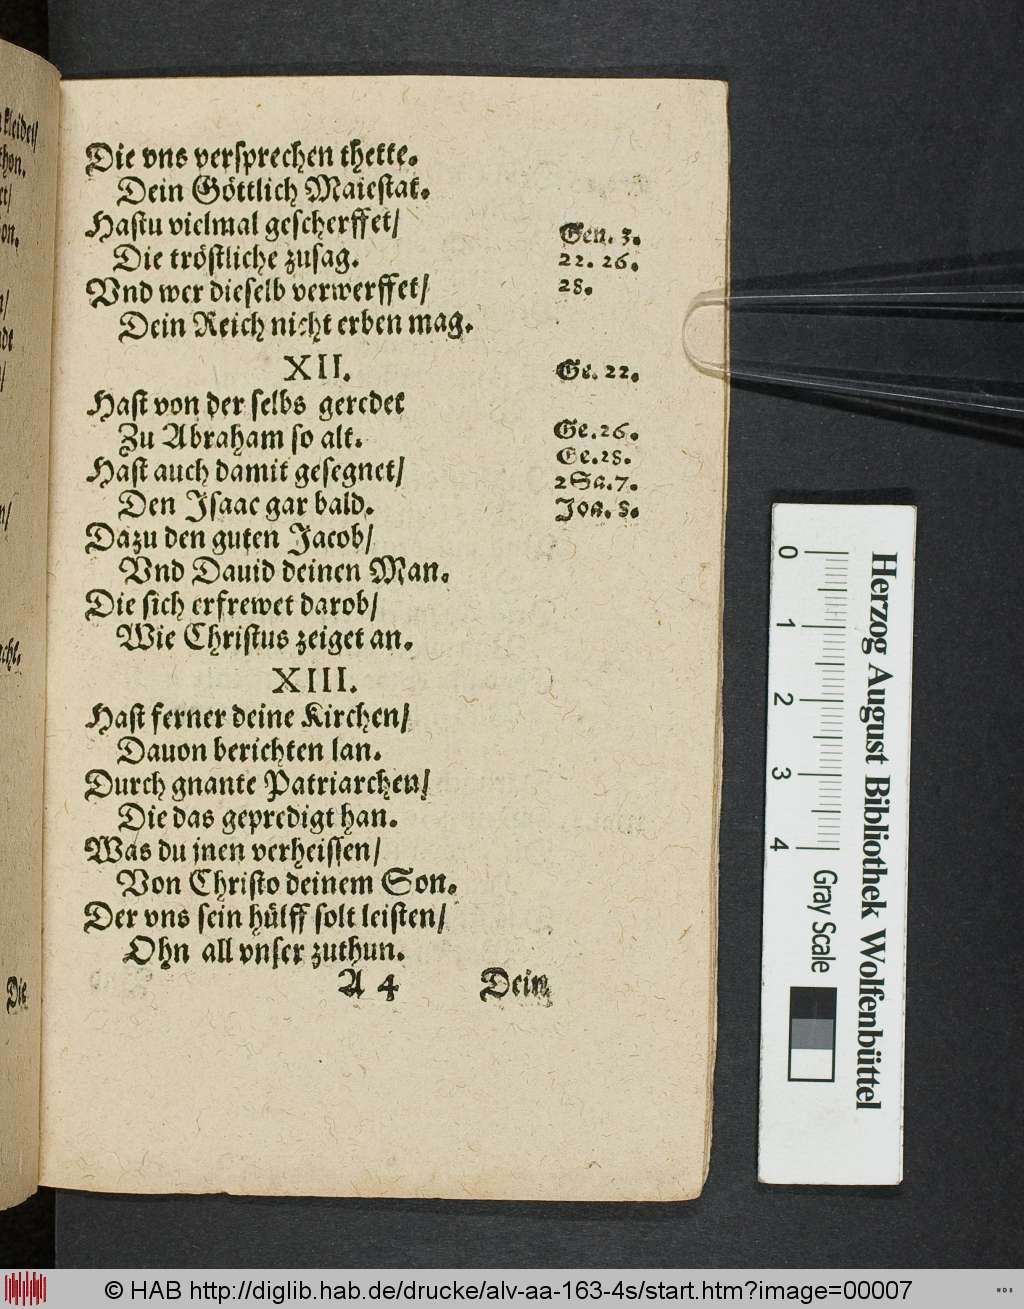 Die vns versprechen thette.
Dein Göttlich Maiestat.
Hastu vielmal gescherffet/
Die tröstliche zusag.
Vnd wer dieselb verwerffet/
Dein Reich nicht erben mag.
Gen. 3.
22. 26.
28.
XII.
Hast von der selbs geredet
Zu Abraham so alt.
Hast auch damit gesegnet/
Den Isaac gar bald.
Dazu den guten Jacob/
Vnd Dauid deinen Man.
Die sich erfrewet darob/
Wie Christus zeiget an.
Ge. 22.
Ge. 26.
Ge. 28.
2 Sa. 7.
Joa. 8.
XIII.
Hast ferner deine Kirchen/
Dauon berichten lan.
Durch gnante Patriarchen/
Die das gepredigt han.
Was du jnen verheissen/
Von Christo deinem Son.
Der vns sein hülff solt leisten/
Ohn all vnser zuthun.
A 4 Dein
kleidet/
Die
0 1 2 3 4
Gray Scale
Herzog August Bibliothek Wolfenbüttel
© HAB http://diglib.hab.de/drucke/alv-aa-163-4s/start.htm?image=00007